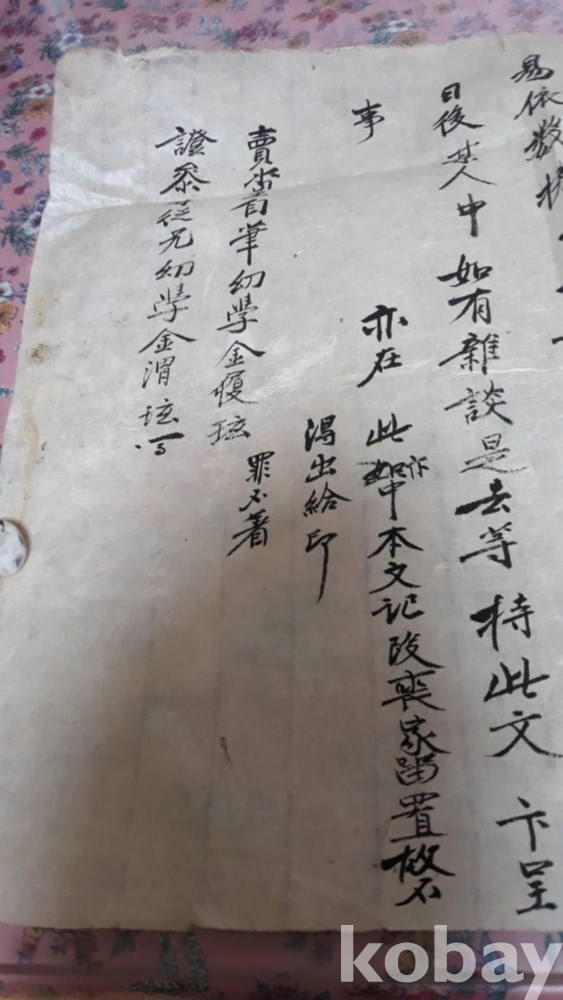 易依數
日後某人中如有雜談是去等持此文卞呈
事
亦在此卞中本文記段喪家留置故不
得出給印
賣畓自筆幼學金 玹
罪不著
證參從兄幼學金渭玹
kobay